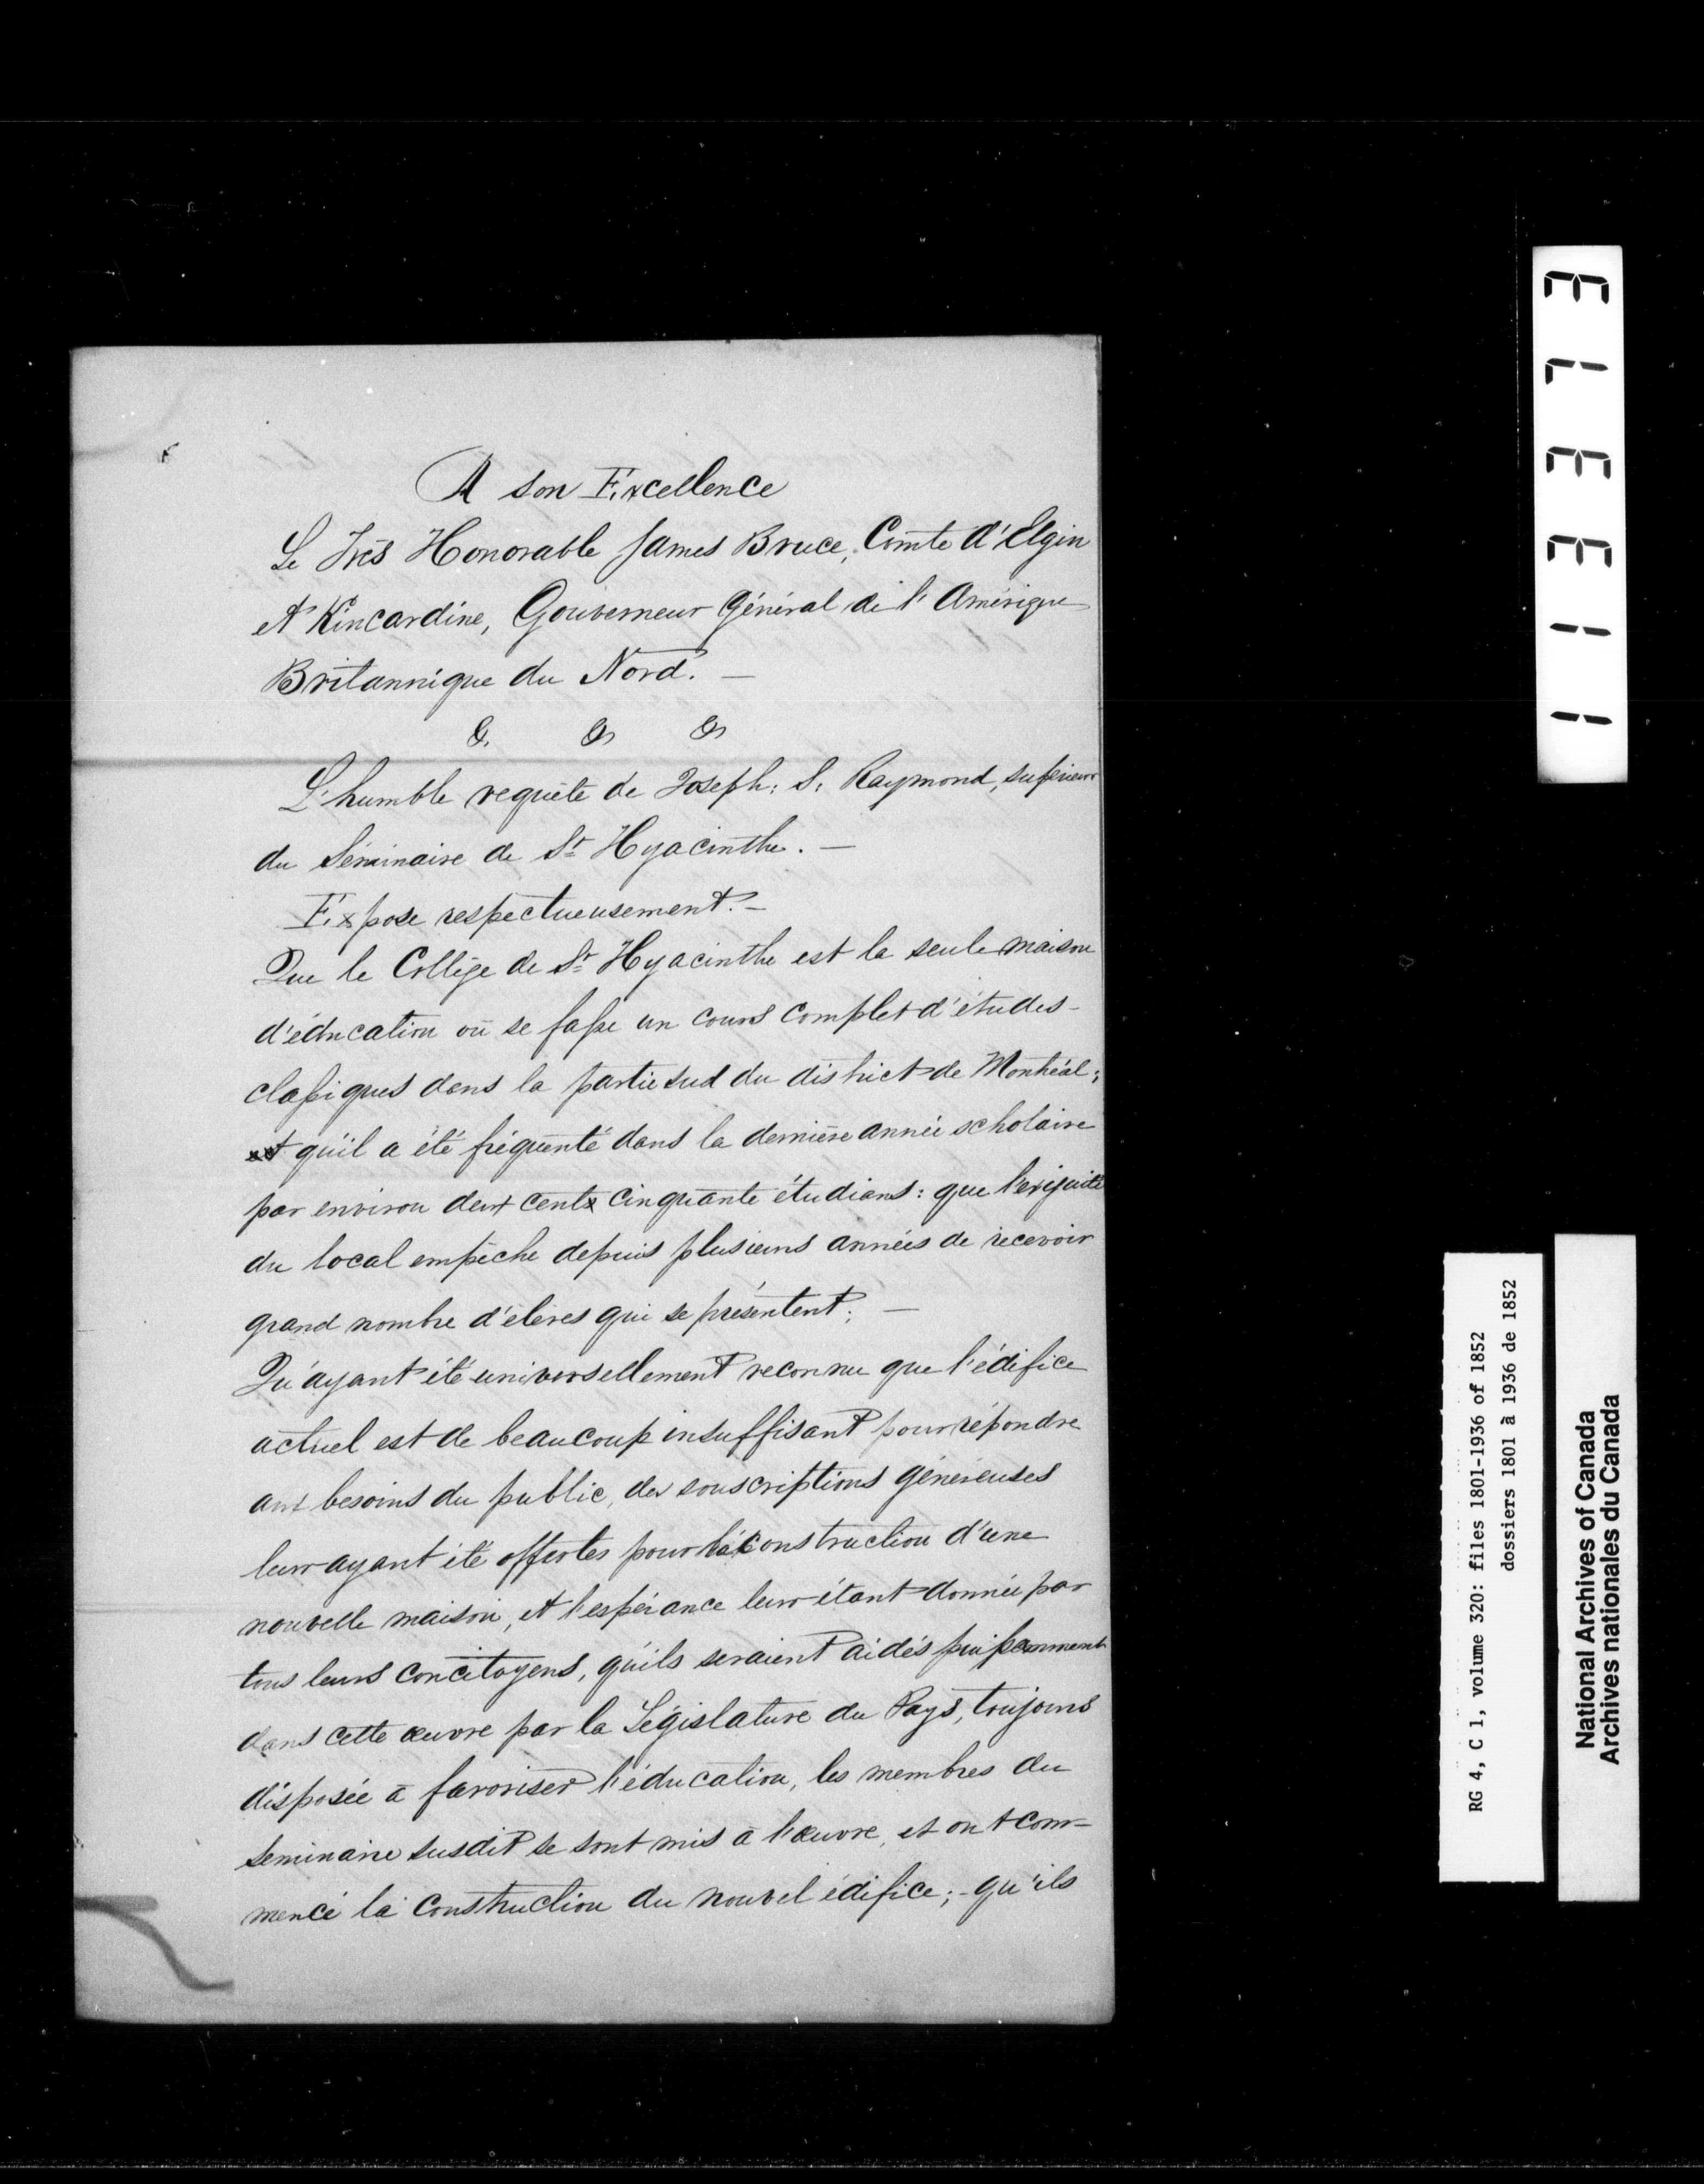 A son Excellence
Le Très Honorable James Bruce, Comte d'Elgin
et Kincardine, Gouverneur Général de l'Amérique
Britannique du Nord. —
&. & &
L'humble requête de Joseph: S: Raymond, supérieur
du Séminaire de St Hyacinthe. —
Expose respectueusement. —
Que le Collège de St Hyacinthe est la seule maison
d'éducation où se fasse un cours complet d'études
classiques dans la partie sud du district de Montréal;
et qu'il a été fréquenté dans la dernière année scholaire
par environ deux cents cinquante étudians: que l'exiguité
du local empêche depuis plusieurs années de recevoir
grand nombre d'élèves qui se présentent; —
Qu'ayant été universellement reconnu que l'édifice
actuel est de beaucoup insuffisant pour répondre
aux besoins du public, des souscriptions généreuses
leur ayant été offertes pour la construction d'une
nouvelle maison, et l'espérance leur étant donnée par
tous leurs concitoyens, qu'ils seraient aidés puissamment
dans cette œuvre par la Législature du Pays, toujours
disposée à favoriser l'éducation, les membres du
Séminaire susdit se sont mis à l'œuvre, et ont com-
mencé la construction du nouvel édifice; - qu'ils
113373
RG 4, C 1, volume 320: files 1801-1936 of 1852
dossiers 1801 à 1936 de 1852
National Archives of Canada
Archives nationales du Canada